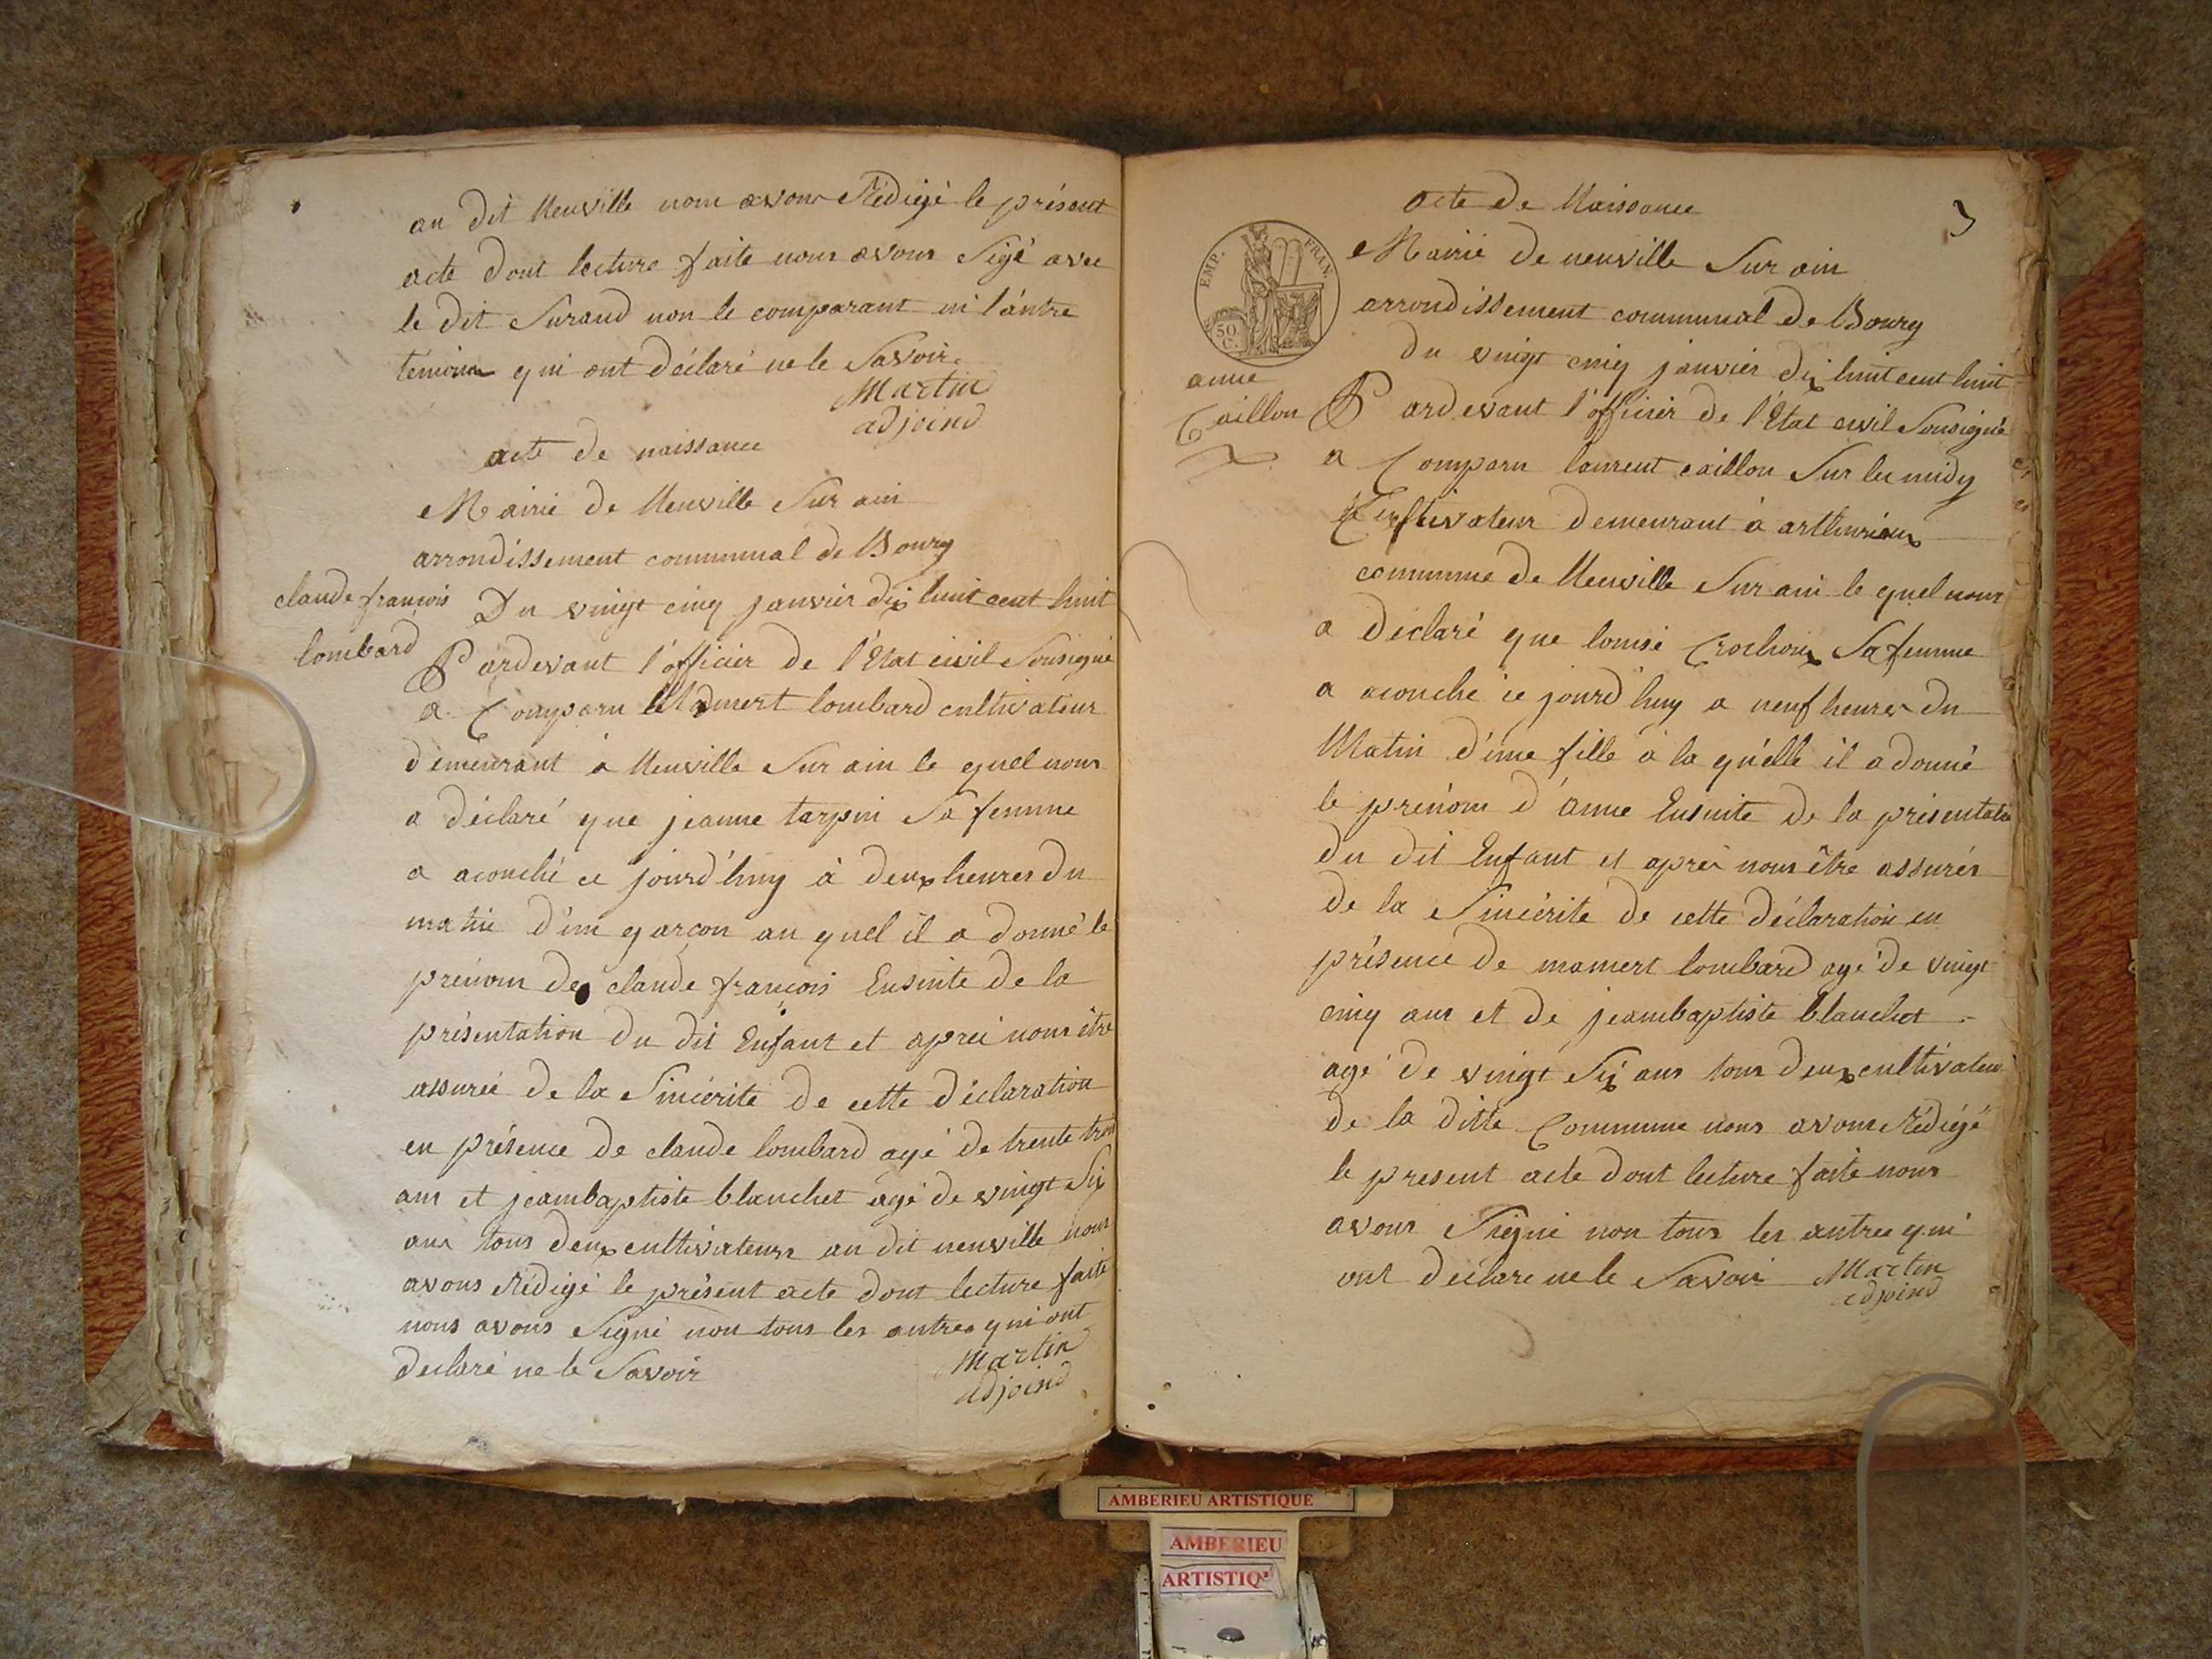 au dit Neuville nous avons Rédigé le présent
acte dont lecture faite nous avons Sigé avec
le dit Suraud non le comparant ni l'autre
témoin qui ont déclaré ne le Savoir.
Martin
adjoind
acte de naissance
Mairie de Neuville Sur ain
arrondissement communal de Bourg
claude françois
lombard
Du vingt cinq janvier dix huit cent huit
Pardevant l'officier de l'Etat civil Sousigné
a Comparu Mamert lombard cultivateur
demeurant à Neuville Sur ain le quel nous
a déclaré que jeanne tarpin Sa femme
a acouché ce jourd'huy à deux heures du
matin d'un garçon au quel il a donné le
prénom de claude françois Ensuite de la
présentation du dit Enfant et aprei nous être
assureé de la Sincérité de cette déclaration
en présence de claude lombard agé de trente trois
ans et jeambaptiste blanchet agé de vingt Six
ans tous deux cultivateurs au dit neuville nous
avons Rédigé le présent acte dont lecture faite
nous avons Signé non tous les autres qui ont
declaré ne le Savoir
Martin
adjoind
3
acte de Naissance
EMP. FRAN.
50 C.
Mairie de neuville Sur ain
arrondissement communal de Bourg
du vingt cinq janvier dix huit cent huit
anne
Caillon
Pardevant l'officier de l'Etat civil Sousigné
a Comparu laurent caillon Sur le midy
Cultivateur demeurant à arthurieux
commune de Neuville Sur ain le quel nous
a déclaré que louise Crochoix Sa femme
a acouché ce jourd'huy a neuf heures du
Matin d'une fille à la qu'elle il a donné
le prénom d'anne Ensuite de la présentation
du dit Enfant et aprei nous être assurés
de la Sincérité de cette déclaration en
présence de mamert lombard agé de vingt
cinq ans et de jeambaptiste blanchet
agé de vingt Six ans tous deux cultivateurs
de la ditte Commune nous avons Rédigé
le present acte dont lecture faite nous
avons Signé non tous les autres qui
ont declare ne le Savoir
Martin
adjoind
AMBERIEU ARTISTIQUE
AMBERIEU
ARTISTIQ